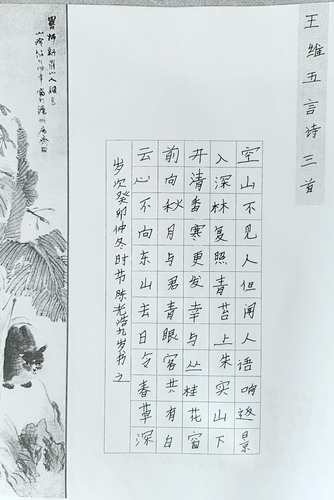 王维五言诗三首
空山不见人但闻人语响返景
入深林复照青苔上朱实山下
开清香寒更发幸与丛桂花窗
前向秋月与君青眼客共有白
云心不向东山去日令春草深
岁次癸卯仲冬时节陈光浩九岁书之